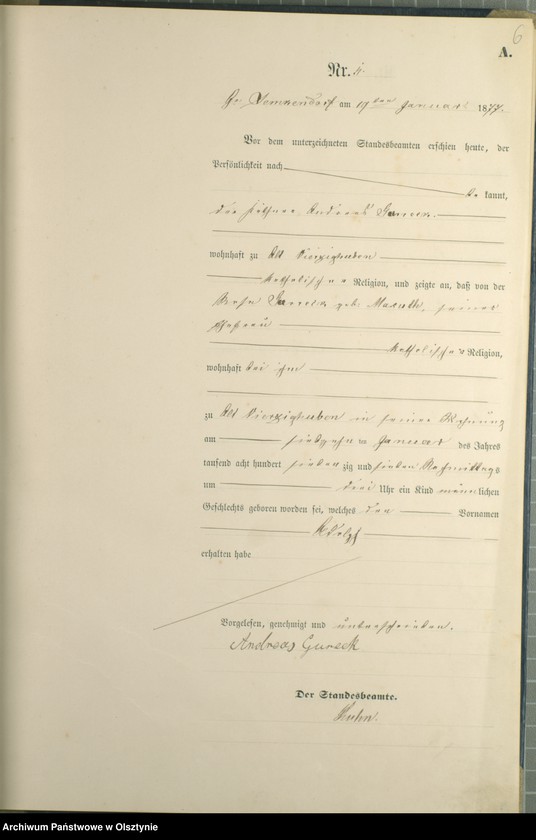 6
A.
Nr. 4.
am 19ten Januar 1877.
Vor dem unterzeichneten Standesbeamten erschien heute, der
Persönlichkeit nach
be kannt,
der Andreas
wohnhaft zu Alt Vierzighuben
katholischer Religion, und zeigte an, daß von der
geb. seiner
Ehefrau
katholischer Religion,
wohnhaft bei ihm
zu Alt Vierzighuben in seiner Wohnung
am siebzehn ten Januar des Jahres
tausend acht hundert sieben zig und sieben Nachmittags
um drei Uhr ein Kind männ lichen
Geschlechts geboren worden sei, welches den Vornamen
Adolph
erhalten habe
Vorgelesen, genehmigt und unterschrieben.
Andreas Gureck
Der Standesbeamte.
Archiwum Państwowe w Olsztynie